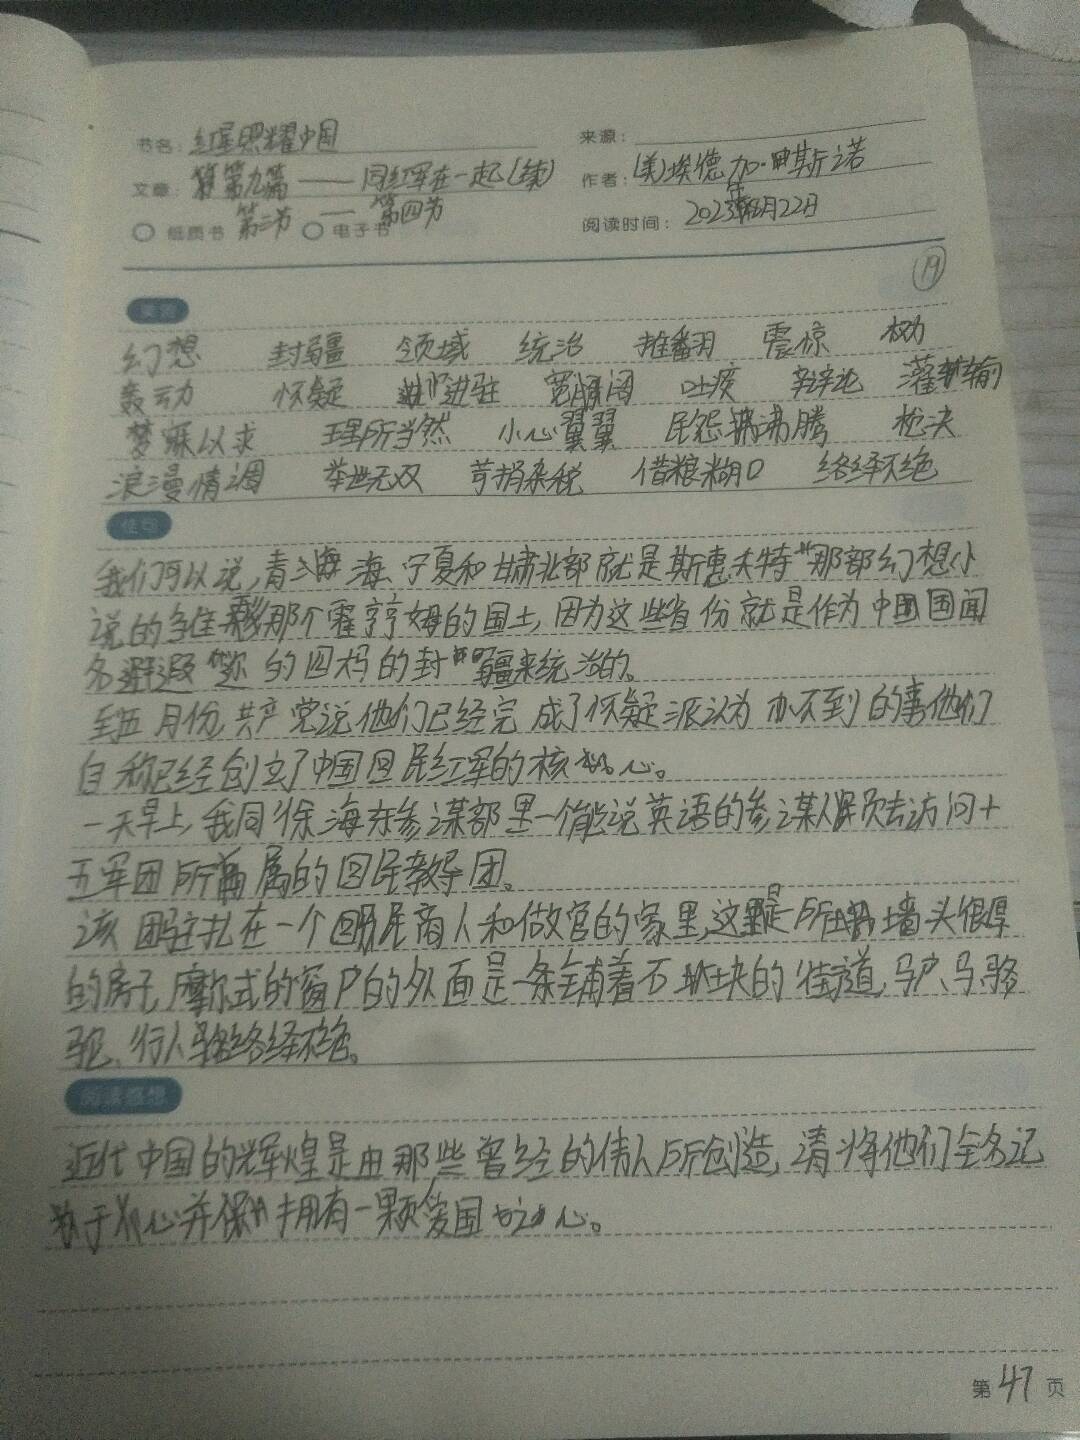 书名: 红星照耀中国
来源:
文章: 第九篇 —— 同红军在一起(续)
作者: (美)埃德加·斯诺
纸质书 第三节 — 电子书 第四节
阅读时间: 2023年8月22日
19
美词
幻想 封疆 领域 统治 推翻 震惊 权力
轰动 怀疑 进驻 宽阔 吐痰 辩论 灌输
梦寐以求 理所当然 小心翼翼 民怨沸腾 枪决
浪漫情调 举世无双 苛捐杂税 借粮糊口 络绎不绝
佳句
我们可以说,青海、宁夏和甘肃北部就是斯惠夫特"那部幻想小
说的那个霍亨姆的国土,因为这些省份就是作为中国国闻
名遐迩的四马的封疆来统治的。
到五月份,共产党说他们已经完成了怀疑派认为办不到的事他们
自称已经创立了中国回民红军的核心。
一天早上,我同徐海东参谋部里一个能说英语的参谋人员去访问十
五军团所属的回民教导团。
该团驻扎在一个回民商人和做官的家里,这是一所墙头很厚
的房子,摩尔式的窗户的外面是一条铺着石块的街道,马户、马、骆
驼、行人络绎不绝。
阅读感想
近代中国的辉煌是由那些曾经的伟人所创造,请将他们全名记
于心并拥有一颗爱国之心。
第 47 页